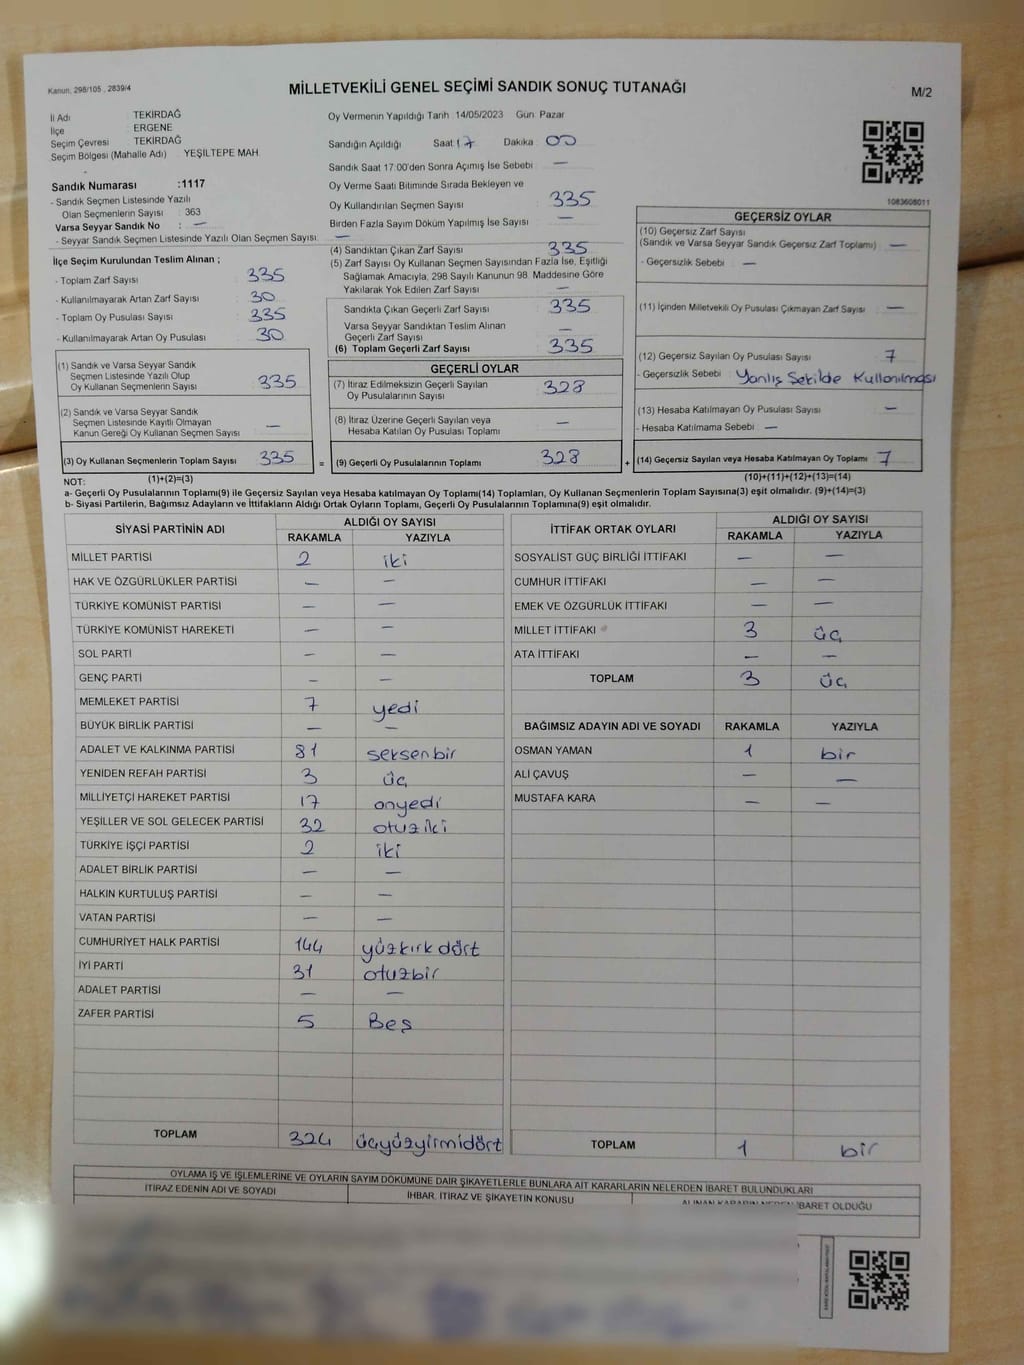 Kanun, 298/105 , 2839/4
MİLLETVEKİLİ GENEL SEÇİMİ SANDIK SONUÇ TUTANAĞI
M/2
İl Adı : TEKİRDAĞ
İlçe : ERGENE
Seçim Çevresi : TEKİRDAĞ
Seçim Bölgesi (Mahalle Adı) : YEŞİLTEPE MAH.
Sandık Numarası :1117
- Sandık Seçmen Listesinde Yazılı
Olan Seçmenlerin Sayısı : 363
Varsa Seyyar Sandık No : —
- Seyyar Sandık Seçmen Listesinde Yazılı Olan Seçmen Sayısı: —
İlçe Seçim Kurulundan Teslim Alınan ;
- Toplam Zarf Sayısı : 335
- Kullanılmayarak Artan Zarf Sayısı : 30
- Toplam Oy Pusulası Sayısı : 335
- Kullanılmayarak Artan Oy Pusulası : 30
(1) Sandık ve Varsa Seyyar Sandık
Seçmen Listesinde Yazılı Olup
Oy Kullanan Seçmenlerin Sayısı : 335
(2) Sandık ve Varsa Seyyar Sandık
Seçmen Listesinde Kayıtlı Olmayan
Kanun Gereği Oy Kullanan Seçmen Sayısı : —
(3) Oy Kullanan Seçmenlerin Toplam Sayısı : 335
(1)+(2)=(3)
Oy Vermenin Yapıldığı Tarih : 14/05/2023 Gün: Pazar
Sandığın Açıldığı Saat: 17 Dakika: 00
Sandık Saat 17:00'den Sonra Açımış İse Sebebi : —
Oy Verme Saati Bitiminde Sırada Bekleyen ve
Oy Kullandırılan Seçmen Sayısı : 335
Birden Fazla Sayım Döküm Yapılmış İse Sayısı : —
(4) Sandıktan Çıkan Zarf Sayısı : 335
(5) Zarf Sayısı Oy Kullanan Seçmen Sayısından Fazla İse, Eşitliği
Sağlamak Amacıyla, 298 Sayılı Kanunun 98. Maddesine Göre
Yakılarak Yok Edilen Zarf Sayısı : —
Sandıkta Çıkan Geçerli Zarf Sayısı : 335
Varsa Seyyar Sandıktan Teslim Alınan
Geçerli Zarf Sayısı : —
(6) Toplam Geçerli Zarf Sayısı : 335
GEÇERLİ OYLAR
(7) İtiraz Edilmeksizin Geçerli Sayılan
Oy Pusulalarının Sayısı : 328
(8) İtiraz Üzerine Geçerli Sayılan veya
Hesaba Katılan Oy Pusulası Toplamı : —
= (9) Geçerli Oy Pusulalarının Toplamı : 328
1083608011
GEÇERSİZ OYLAR
(10) Geçersiz Zarf Sayısı
(Sandık ve Varsa Seyyar Sandık Geçersiz Zarf Toplamı) : —
- Geçersizlik Sebebi : —
(11) İçinden Milletvekili Oy Pusulası Çıkmayan Zarf Sayısı : —
(12) Geçersiz Sayılan Oy Pusulası Sayısı : 7
- Geçersizlik Sebebi : Yanlış Şekilde Kullanılması
(13) Hesaba Katılmayan Oy Pusulası Sayısı : —
- Hesaba Katılmama Sebebi : —
+ (14) Geçersiz Sayılan veya Hesaba Katılmayan Oy Toplamı : 7
(10)+(11)+(12)+(13)=(14)
NOT:
a- Geçerli Oy Pusulalarının Toplamı(9) ile Geçersiz Sayılan veya Hesaba katılmayan Oy Toplamı(14) Toplamları, Oy Kullanan Seçmenlerin Toplam Sayısına(3) eşit olmalıdır. (9)+(14)=(3)
b- Siyasi Partilerin, Bağımsız Adayların ve İttifakların Aldığı Ortak Oyların Toplamı, Geçerli Oy Pusulalarının Toplamına(9) eşit olmalıdır.
SİYASİ PARTİNİN ADI ALDIĞI OY SAYISI
RAKAMLA YAZIYLA
MİLLET PARTİSİ 2 iki
HAK VE ÖZGÜRLÜKLER PARTİSİ — —
TÜRKİYE KOMÜNİST PARTİSİ — —
TÜRKİYE KOMÜNİST HAREKETİ — —
SOL PARTİ — —
GENÇ PARTİ — —
MEMLEKET PARTİSİ 7 yedi
BÜYÜK BİRLİK PARTİSİ — —
ADALET VE KALKINMA PARTİSİ 81 seksenbir
YENİDEN REFAH PARTİSİ 3 üç
MİLLİYETÇİ HAREKET PARTİSİ 17 onyedi
YEŞİLLER VE SOL GELECEK PARTİSİ 32 otuziki
TÜRKİYE İŞÇİ PARTİSİ 2 iki
ADALET BİRLİK PARTİSİ — —
HALKIN KURTULUŞ PARTİSİ — —
VATAN PARTİSİ — —
CUMHURİYET HALK PARTİSİ 144 yüzkırkdört
İYİ PARTİ 31 otuzbir
ADALET PARTİSİ — —
ZAFER PARTİSİ 5 Beş
TOPLAM 324 üçyüzyirmidört
İTTİFAK ORTAK OYLARI ALDIĞI OY SAYISI
RAKAMLA YAZIYLA
SOSYALİST GÜÇ BİRLİĞİ İTTİFAKI — —
CUMHUR İTTİFAKI — —
EMEK VE ÖZGÜRLÜK İTTİFAKI — —
MİLLET İTTİFAKI 3 üç
ATA İTTİFAKI — —
TOPLAM 3 üç
BAĞIMSIZ ADAYIN ADI VE SOYADI RAKAMLA YAZIYLA
OSMAN YAMAN 1 bir
ALİ ÇAVUŞ — —
MUSTAFA KARA — —
TOPLAM 1 bir
OYLAMA İŞ VE İŞLEMLERİNE VE OYLARIN SAYIM DÖKÜMÜNE DAİR ŞİKAYETLERLE BUNLARA AİT KARARLARIN NELERDEN İBARET BULUNDUKLARI
İTİRAZ EDENİN ADI VE SOYADI İHBAR, İTİRAZ VE ŞİKAYETİN KONUSU ALINAN KARARIN NEDEN İBARET OLDUĞU